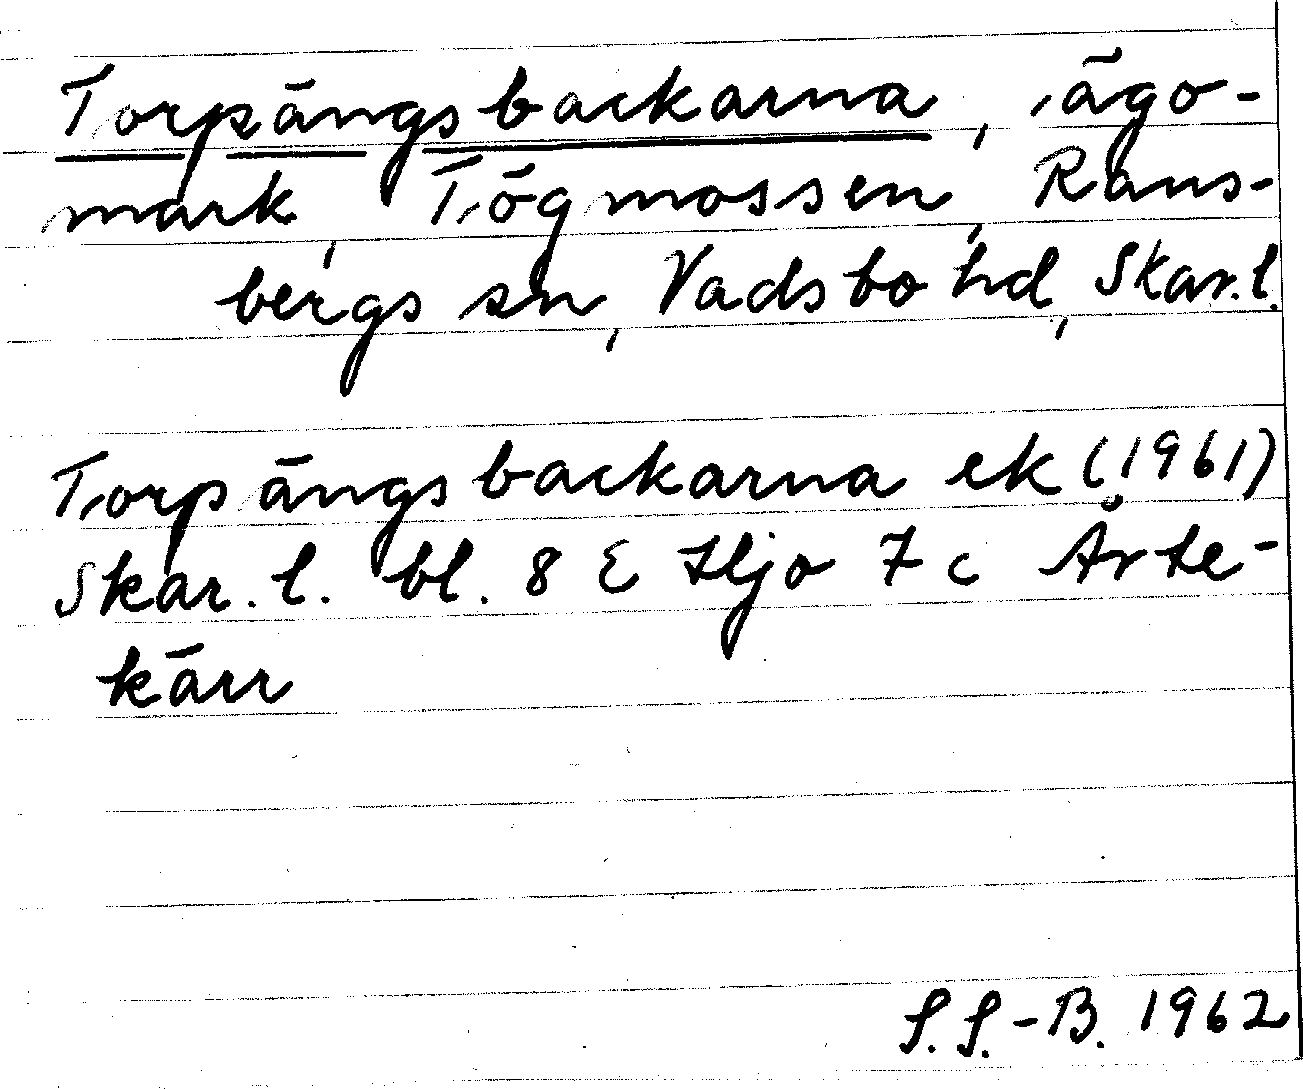 Torpängsbackarna, ägo-
mark, Tögmossen, Rans-
bergs sn, Vadsbo hd, Skar.l.
Torpängsbackarna ek (1961)
Skar. l. bl. 8 E Hjo 7 c Årte-
kärr
S. S.-B. 1962